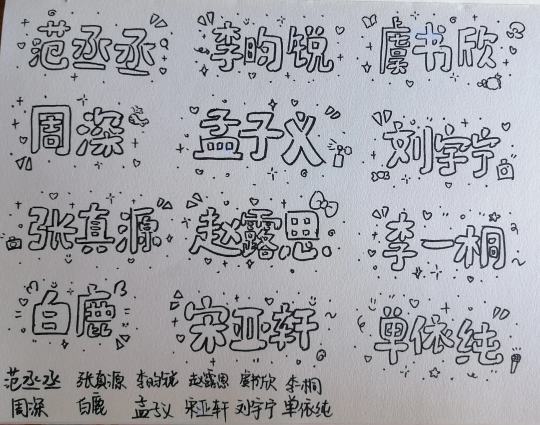 范丞丞 李昀锐 虞书欣
周深 孟子义 刘宇宁
张真源 赵露思 李一桐
白鹿 宋亚轩 单依纯
范丞丞 张真源 李昀锐 赵露思 虞书欣 李桐
周深 白鹿 孟子义 宋亚轩 刘宇宁 单依纯